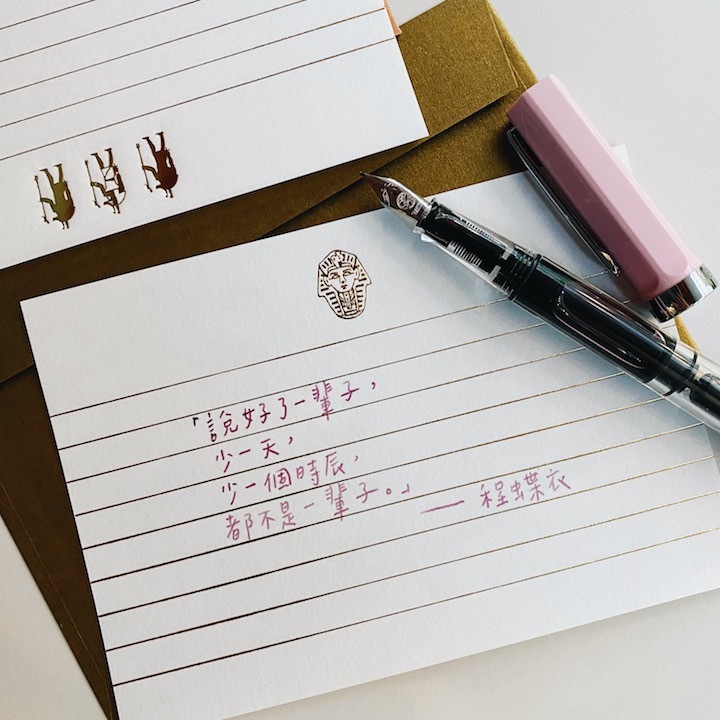 「說好了一輩子，
少一天，
少一個時辰，
都不是一輩子。」 — 程蝶衣